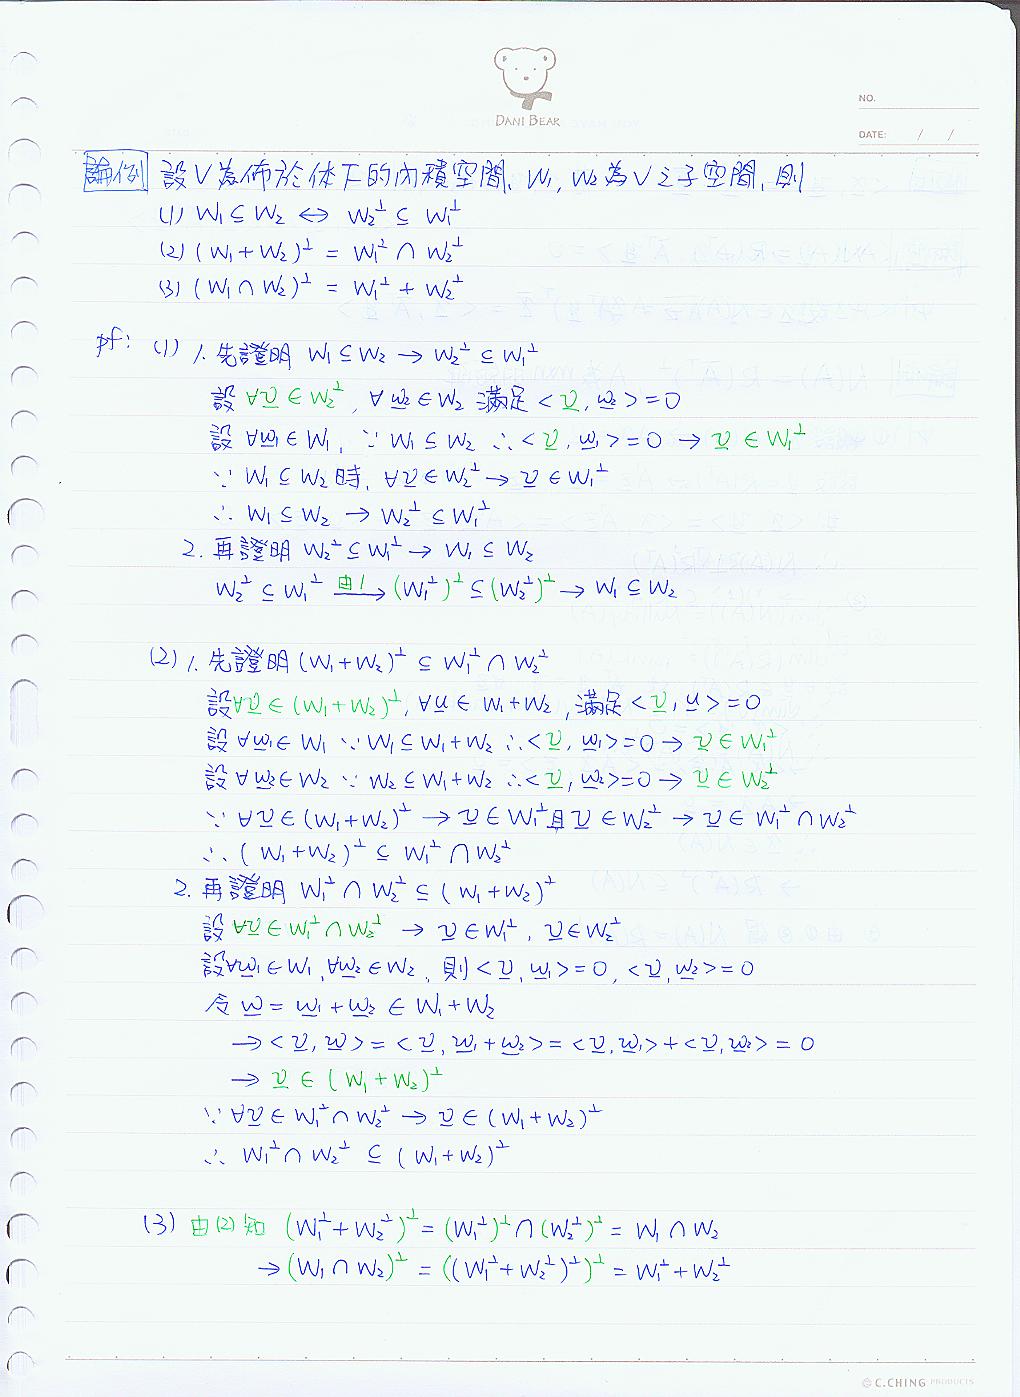 DANI BEAR
NO.
DATE: / /
論例 設V為佈於体F的內積空間, W₁, W₂為V之子空間, 則
(1) W₁ ⊆ W₂ ↔ W₂^⊥ ⊆ W₁^⊥
(2) (W₁+W₂)^⊥ = W₁^⊥ ∩ W₂^⊥
(3) (W₁∩W₂)^⊥ = W₁^⊥ + W₂^⊥
pf: (1) 1. 先證明 W₁⊆W₂ → W₂^⊥ ⊆ W₁^⊥
設 ∀v ∈ W₂^⊥, ∀w₂∈W₂ 滿足 <v, w₂>=0
設 ∀w₁∈W₁, ∵ W₁⊆W₂ ∴<v, w₁>=0 → v ∈ W₁^⊥
∵ W₁⊆W₂時, ∀v∈W₂^⊥ → v∈W₁^⊥
∴ W₁⊆W₂ → W₂^⊥⊆W₁^⊥
2. 再證明 W₂^⊥⊆W₁^⊥ → W₁⊆W₂
W₂^⊥ ⊆ W₁^⊥ 由1→ (W₁^⊥)^⊥ ⊆ (W₂^⊥)^⊥ → W₁⊆W₂
(2) 1. 先證明 (W₁+W₂)^⊥ ⊆ W₁^⊥ ∩ W₂^⊥
設∀v∈(W₁+W₂)^⊥, ∀u∈W₁+W₂, 滿足<v, u>=0
設 ∀w₁∈W₁ ∵ W₁⊆W₁+W₂ ∴<v, w₁>=0 → v∈W₁^⊥
設 ∀w₂∈W₂ ∵ W₂⊆W₁+W₂ ∴<v, w₂>=0 → v∈W₂^⊥
∵ ∀v∈(W₁+W₂)^⊥ → v∈W₁^⊥且v∈W₂^⊥ → v∈W₁^⊥∩W₂^⊥
∴ (W₁+W₂)^⊥ ⊆ W₁^⊥∩W₂^⊥
2. 再證明 W₁^⊥∩W₂^⊥ ⊆ (W₁+W₂)^⊥
設 ∀v∈W₁^⊥∩W₂^⊥ → v∈W₁^⊥, v∈W₂^⊥
設∀w₁∈W₁, ∀w₂∈W₂, 則<v, w₁>=0, <v, w₂>=0
令 w = w₁+w₂ ∈ W₁+W₂
→<v, w>=<v, w₁+w₂>=<v, w₁>+<v, w₂>=0
→ v ∈ (W₁+W₂)^⊥
∵ ∀v∈W₁^⊥∩W₂^⊥ → v∈(W₁+W₂)^⊥
∴ W₁^⊥∩W₂^⊥ ⊆ (W₁+W₂)^⊥
(3) 由(2)知 (W₁^⊥+W₂^⊥)^⊥ = (W₁^⊥)^⊥∩(W₂^⊥)^⊥ = W₁∩W₂
→(W₁∩W₂)^⊥ = ((W₁^⊥+W₂^⊥)^⊥)^⊥ = W₁^⊥+W₂^⊥
C.CHING PRODUCTS